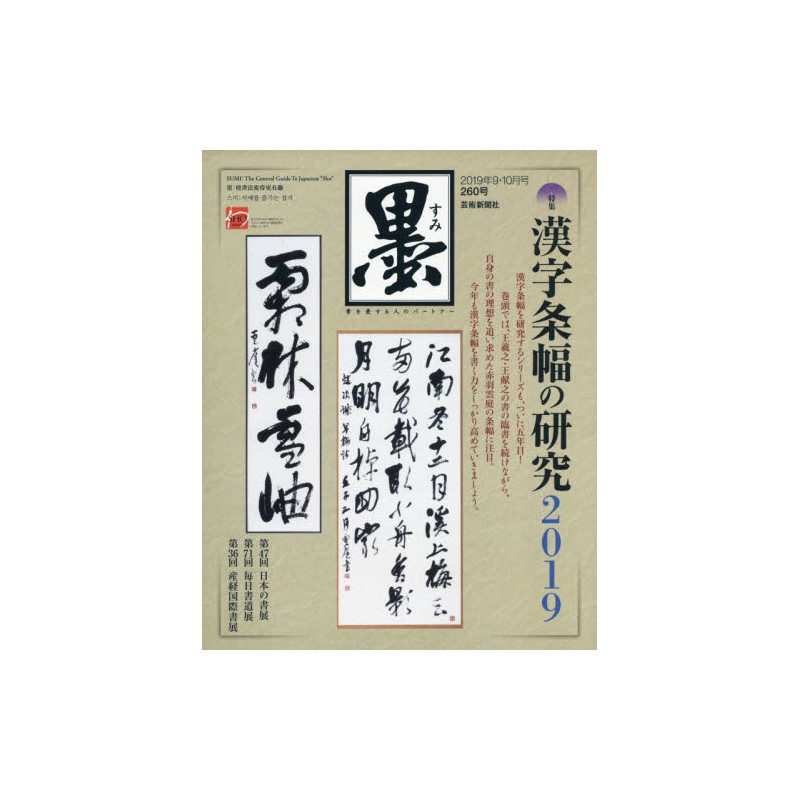 SUMI: The General Guide To Japanese "Sho"
墨：使書法変得更有趣
스미:서예를 즐기는 잡지
SHO
墨
すみ
書を愛する人のパートナー
2019年9・10月号
260号
芸術新聞社
特集
漢字条幅の研究2019
漢字条幅を研究するシリーズも、ついに五年目！
巻頭では、王羲之・王献之の書の臨書を続けながら、
自身の書の理想を追い求めた赤羽雲庭の条幅に注目。
今年も漢字条幅を書く力をしっかり高めていきましょう。
江南冬十二月渓上梅
月明自棹回
第47回 日本の書展
第71回 毎日書道展
第36回 産経国際書展